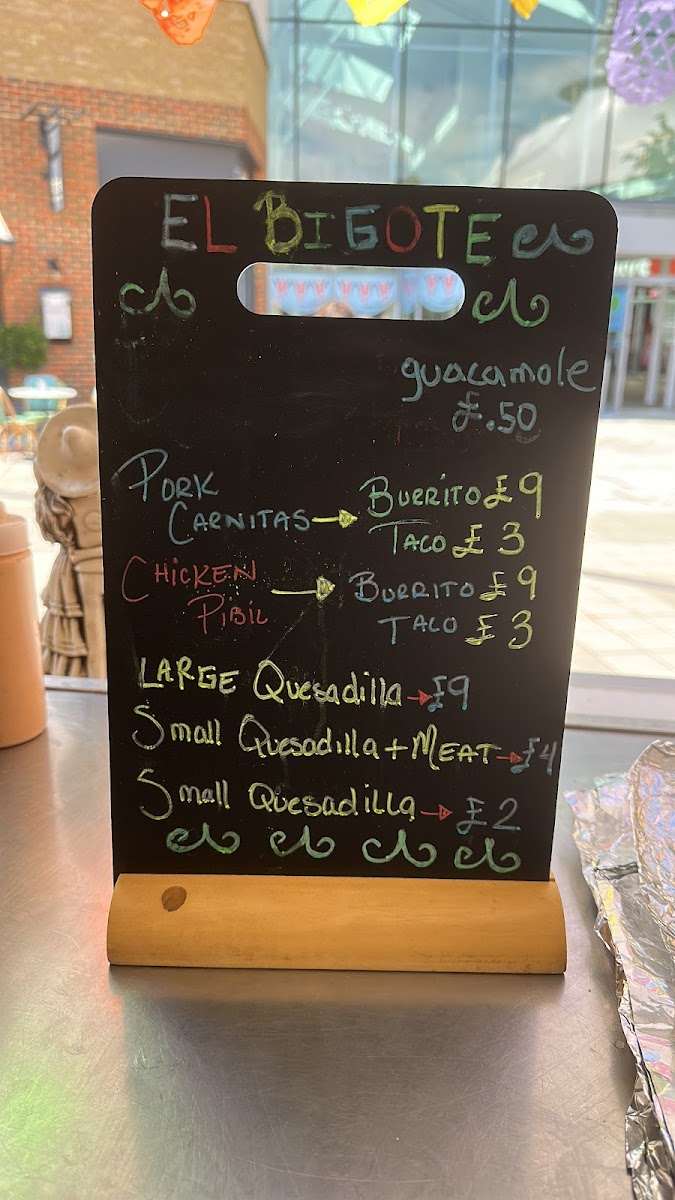 EL BIGOTE
guacamole
£.50
PORK
CARNITAS → BURRITO £9
TACO £3
CHICKEN
PIBIL → BURRITO £9
TACO £3
LARGE Quesadilla → £9
Small Quesadilla + MEAT → £4
Small Quesadilla → £2